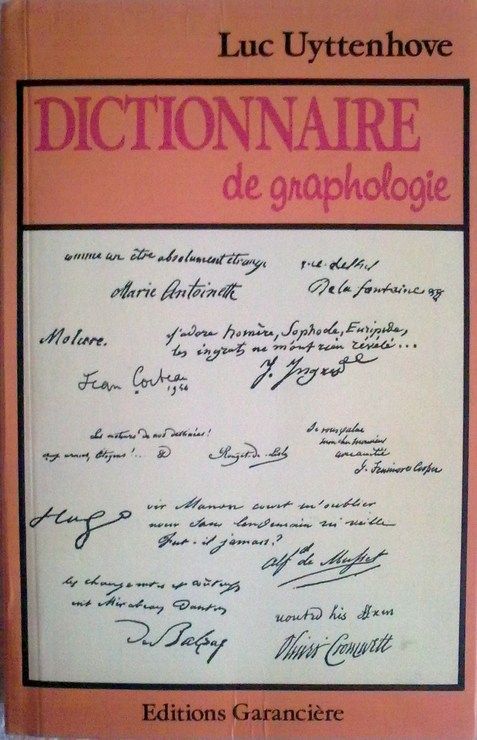 Luc Uyttenhove
DICTIONNAIRE
de graphologie
comme un être absolument étrange
Marie Antoinette
De la fontaine
Moliere.
J'adore homère, Sophocle, Euripide,
les ingrats ne m'ont rien révélé...
J. Ingres
Jean Cocteau
1946
Les auteurs de nos destinées!
aux armes, Citoyens!..
Rouget de Lisle
J. Fenimore Cooper
Hugo
vir Manon court m'oublier
pour sans lendemain ni veille
Fut-il jamais?
Alf d de Musset
les changements
ont Mirabeau Danton
De Balzac
his
Oliver Cromwell
Editions Garancière